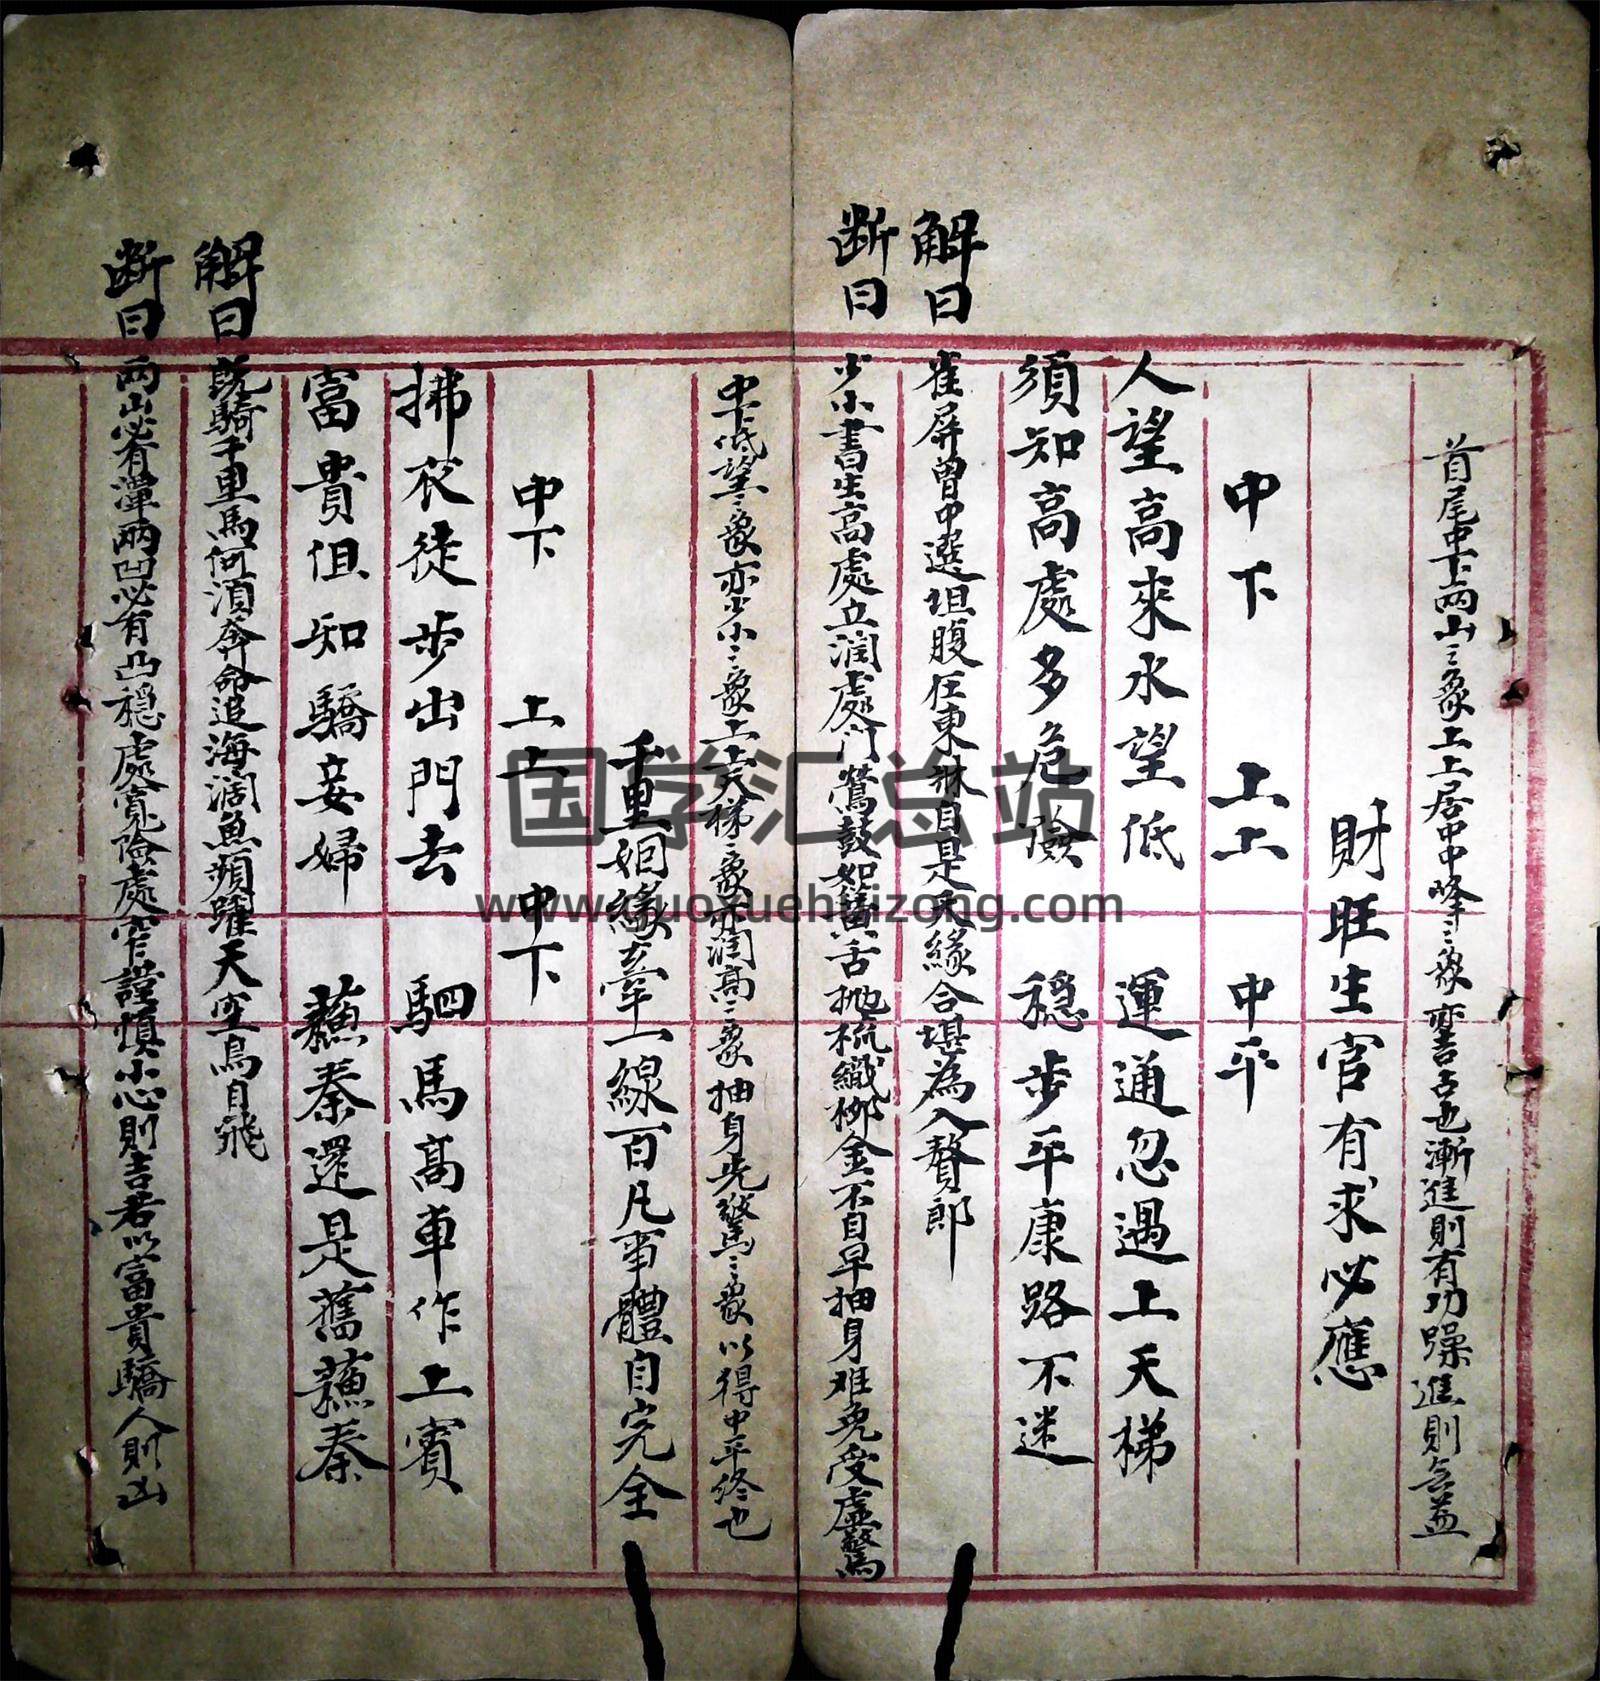 首尾中下两山〻象上上居中中峰〻象
財旺生官有求必應
中下 上上 中平
人望高來水望低 運通忽遇上天梯
須知高處多危險 穩步平康路不迷
解曰 雀屏曾中選坦腹在東牀自是天緣合堪為入贅郎
断曰 少小書生高處立潤處鬥鶯鼓如簧舌抛梭織柳金不自早抽身难免受虛驚
中下低望〻象亦少小〻象上上天梯〻象亦潤高〻象抽身免驚〻象以得中平終也
千里姻緣牽一線百凡事體自完全
中下 上上 中下
拂衣徒步出門去 駟馬高車作上賓
富貴但知驕妾婦 蘇秦還是舊蘇秦
解曰 既騎千里馬何須奔命追海濶魚頻躍天空鳥自飛
断曰 两山必有澤兩凹必有凸穩處寬險處窄謹慎小心則吉若以富貴驕人則凶
国学汇总站
www.guoxuehuizong.com